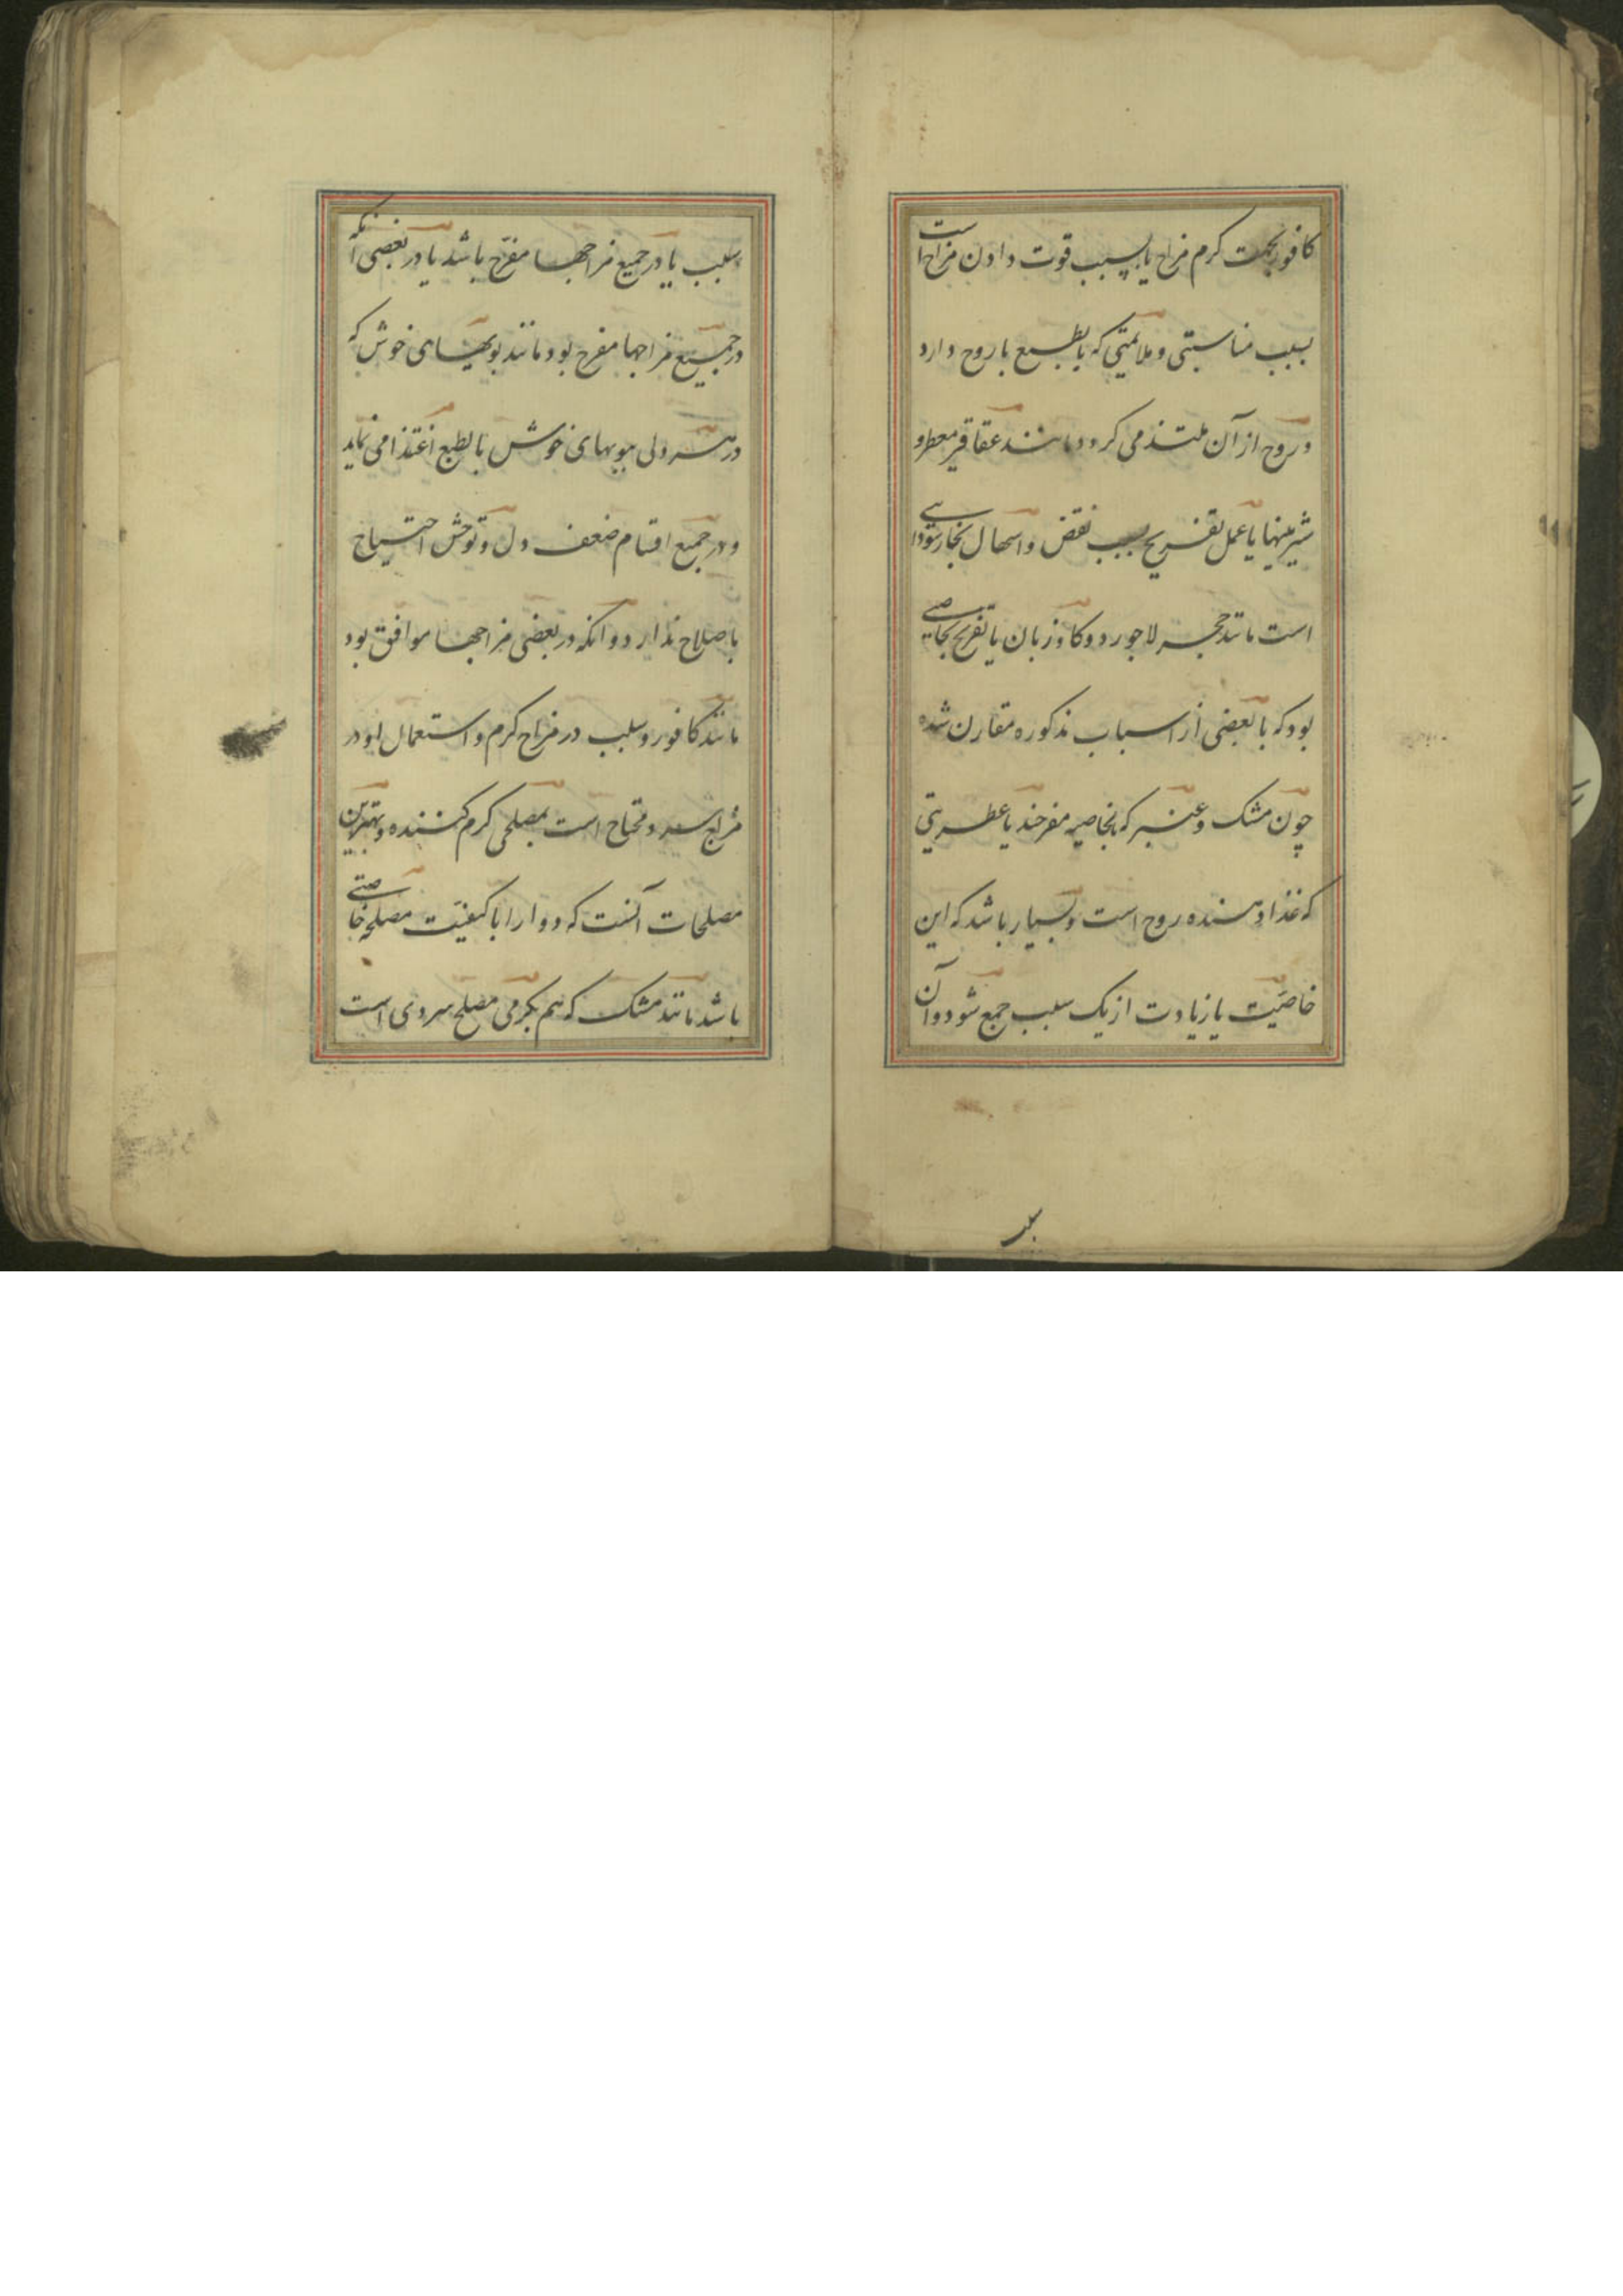 کافور بجهت کرم مزاج یا بسبب قوت دادن مزاج است
بسبب مناسبتی و ملایمتی که بالطبع با روح دارد
و روح از آن ملتذ می کردد مانند عقاقیر معطر و
شیرینیها یا عمل تفریح بسبب نقض و اسهال بخار سوداسے
است مانند حجر لاجورد و کاوزبان یا تفریح بخاصیے
بود که با بعضی از اسباب مذکوره مقارن شده
چون مشک و عنبر که بخاصیه مفرحند یا عطریتی
که غذا دهنده روح است و بسیار باشد که این
خاصیّت یا زیادت از یک سبب جمع شود و آن
سبب
سبب یا در جمیع مزاجها مفرّح باشد یا در بعضی آنکه
در جمیع مزاجها مفرح بود مانند بویهای خوش که
در هر دلی ببویهای خوش بالطبع اغتذا می نماید
و در جمیع اقسام ضعف دل و توحّش احتیاج
باصلاح ندارد و انکه در بعضی مزاجها موافق بود
مانند کافور و سلب در مزاج کرم و استعمال او در
مزاج سرد محتاج است بمصلحی کرم کننده و بهترین
مصلحات آنست که دوا را با کیفیّت مصلحه خاصتے
باشد مانند مشک که هم بکرمی مصلح سردی است